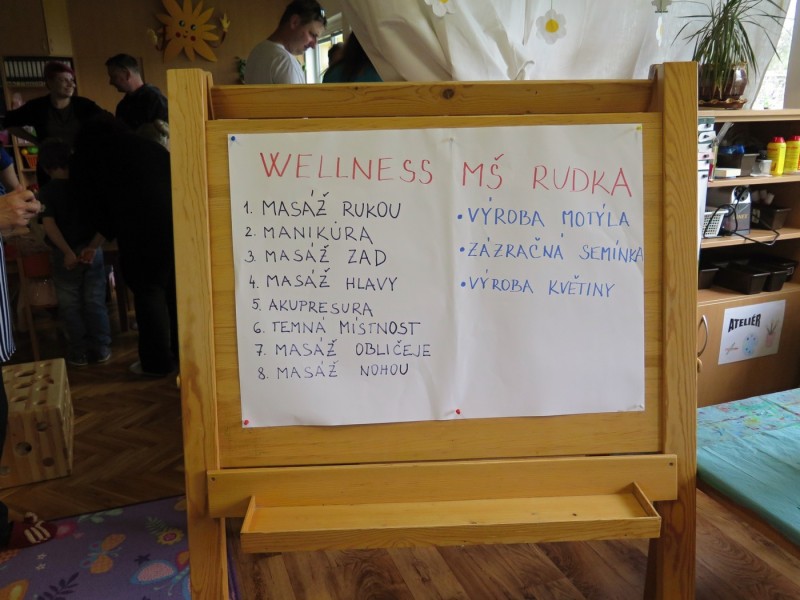 WELLNESS MŠ RUDKA
1. MASÁŽ RUKOU
2. MANIKÚRA
3. MASÁŽ ZAD
4. MASÁŽ HLAVY
5. AKUPRESURA
6. TEMNÁ MÍSTNOST
7. MASÁŽ OBLIČEJE
8. MASÁŽ NOHOU
•VÝROBA MOTÝLA
•ZÁZRAČNÁ SEMÍNKA
•VÝROBA KVĚTINY
ATELIÉR